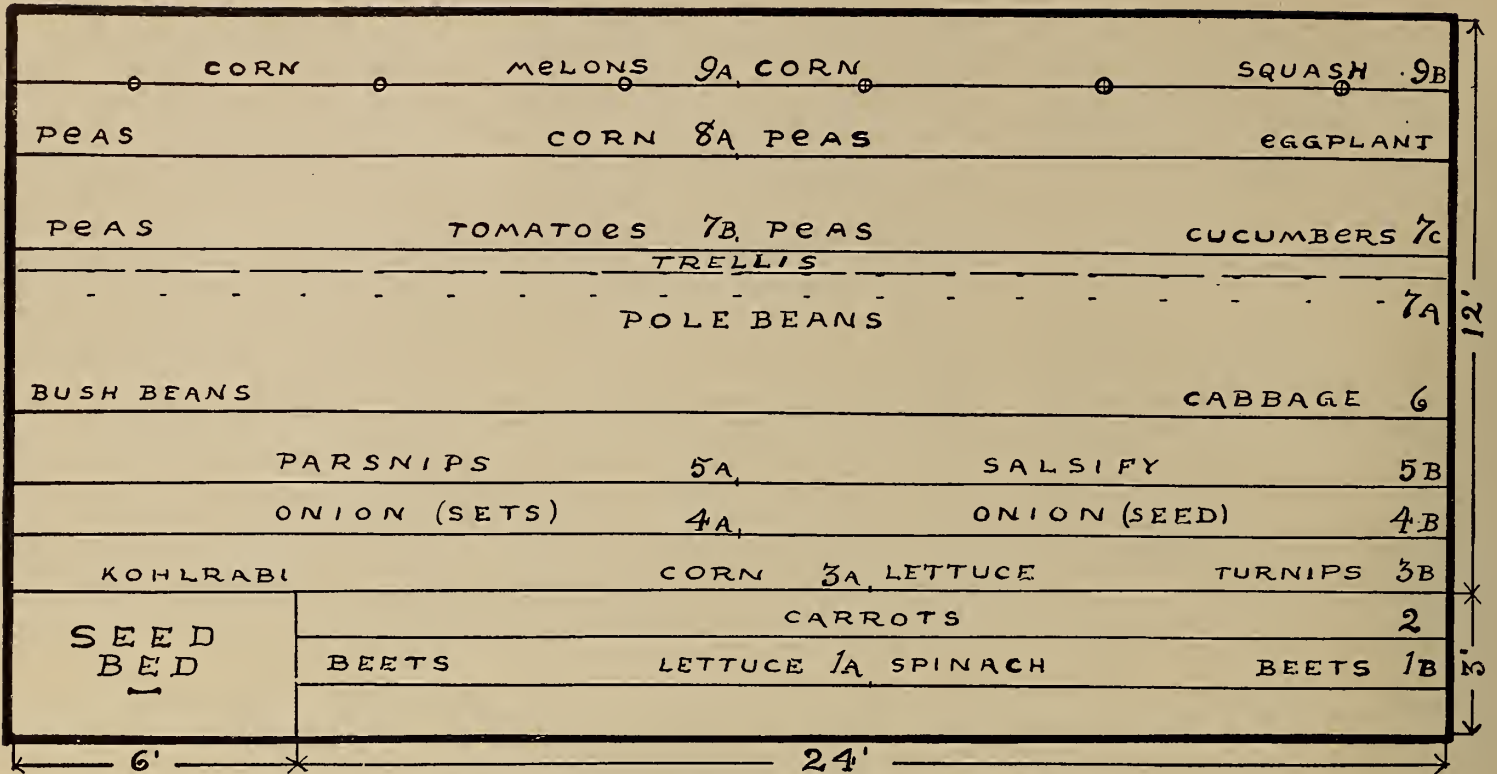 CORN MELONS 9A CORN SQUASH 9B
PEAS CORN 8A PEAS EGGPLANT
PEAS TOMATOES 7B PEAS CUCUMBERS 7C
TRELLIS
7A
POLE BEANS
12'
BUSH BEANS CABBAGE 6
PARSNIPS 5A SALSIFY 5B
ONION (SETS) 4A ONION (SEED) 4B
KOHLRABI CORN 3A LETTUCE TURNIPS 3B
CARROTS 2
SEED
BED
BEETS LETTUCE 1A SPINACH BEETS 1B
3'
6' 24'